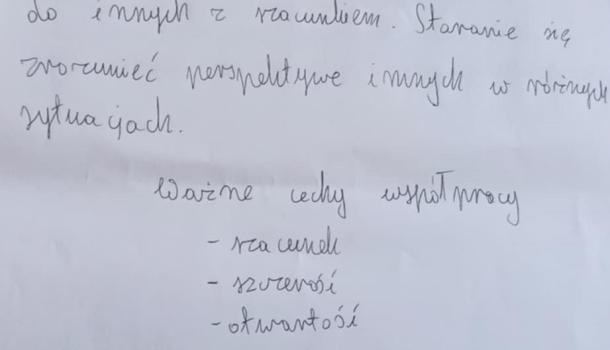 do innych z szacunkiem. Staranie się
zrozumieć perspektywe innych w różnych
sytuacjach.
Ważne cechy współpracy
- szacunek
- szczerość
- otwartość